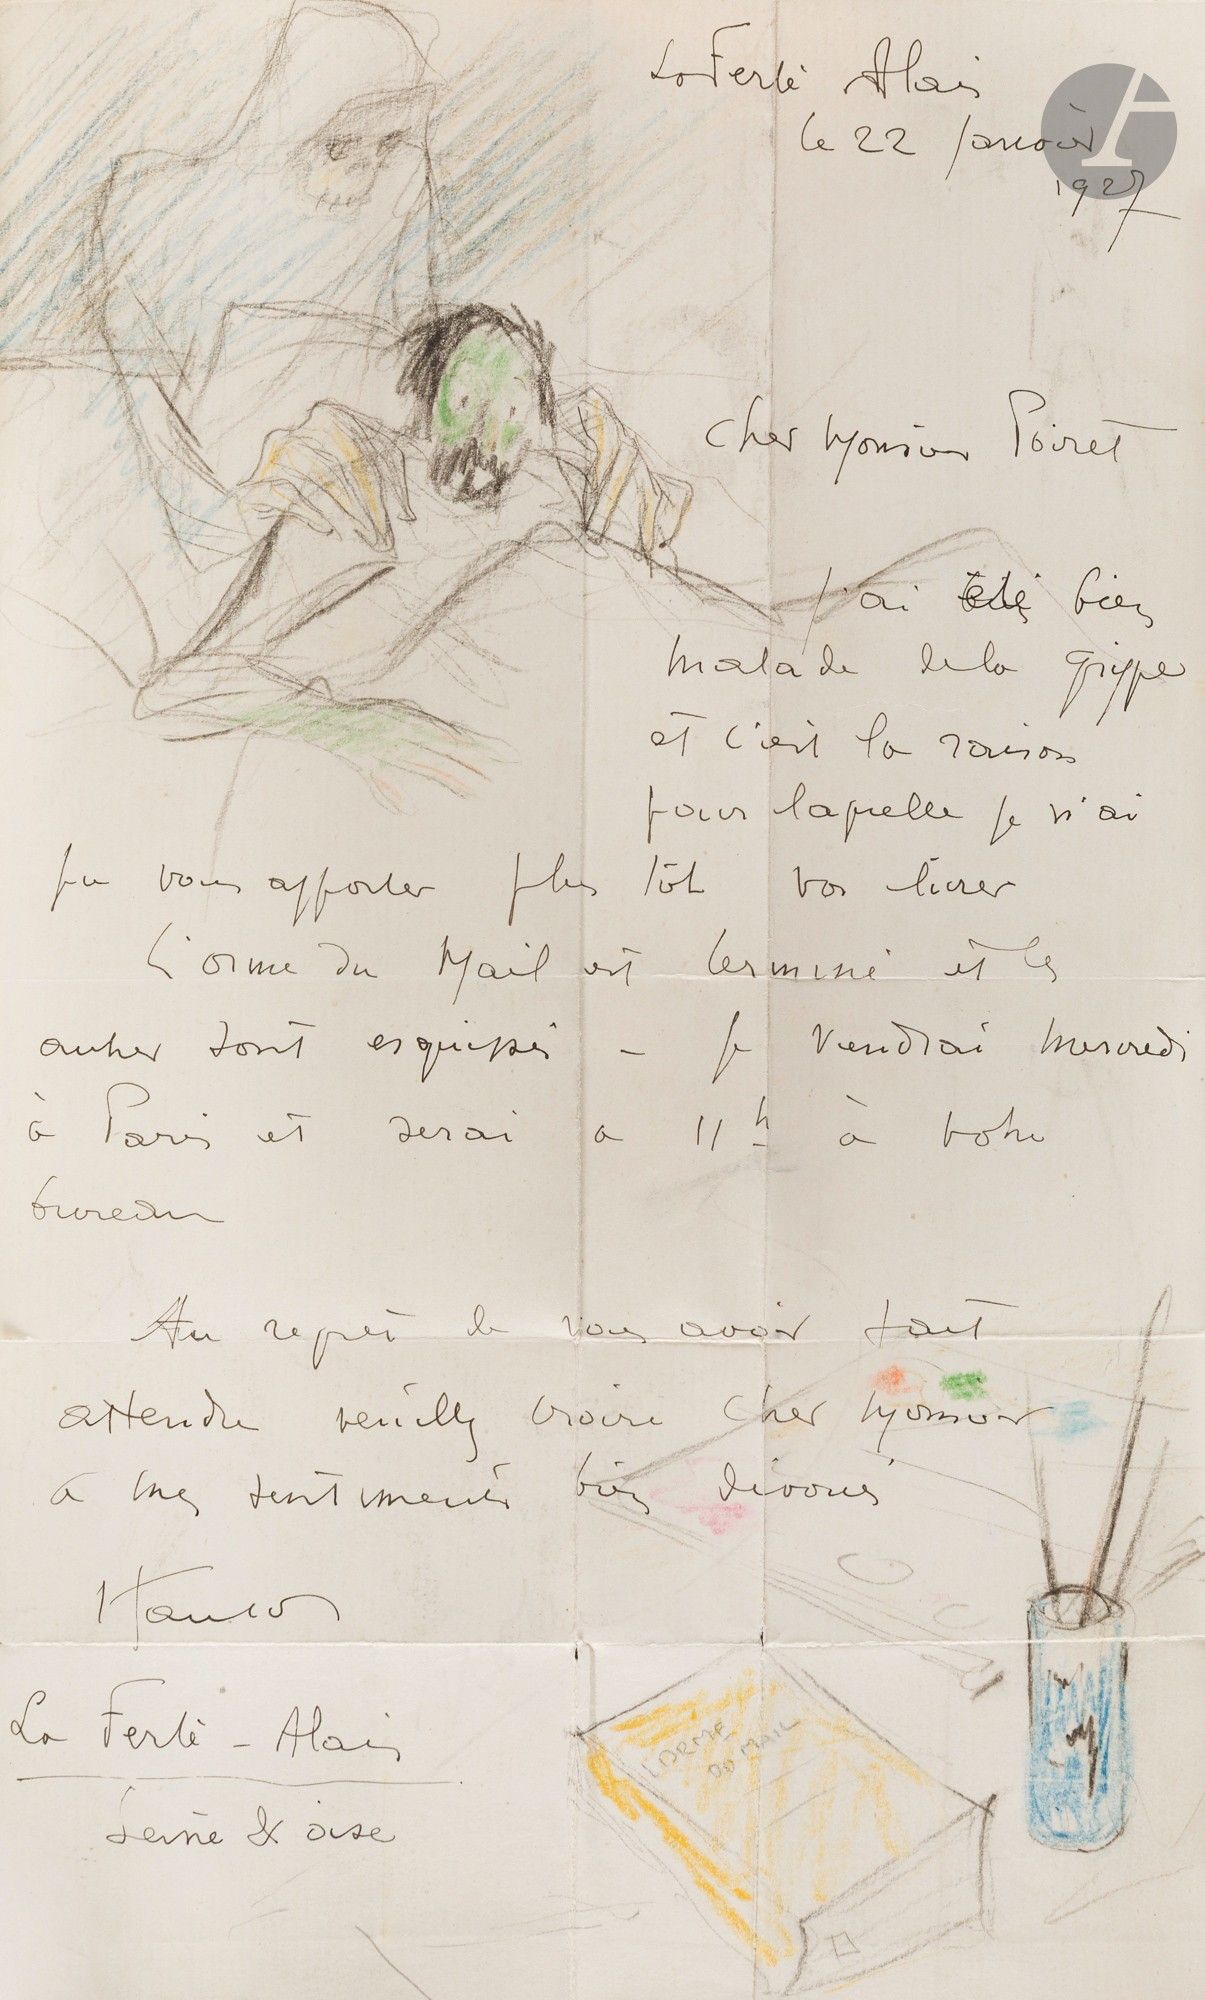 La Ferté Alais
le 22 Janvier
1927
Cher Monsieur Poiret
J'ai été bien
malade de la grippe
et c'est la raison
pour laquelle je n'ai
pu vous apporter plus tôt vos livres
L'orme du Mail est terminé et les
autres sont esquissés - Je viendrai Mercredi
à Paris et serai a 11h à votre
bureau
Au regret de vous avoir fait
attendre veuillez croire cher Monsieur
a mes sentiments bien dévoués
La Ferté - Alais
Seine & oise
L'ORME
DU MAIL